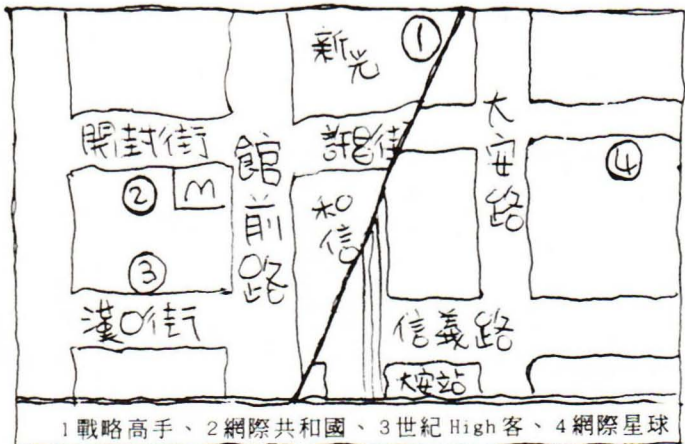 新光
①
大安路
開封街
館前路
許昌街
④
②
M
和信
③
漢口街
信義路
大安站
1戰略高手、2網際共和國、3世紀High客、4網際星球